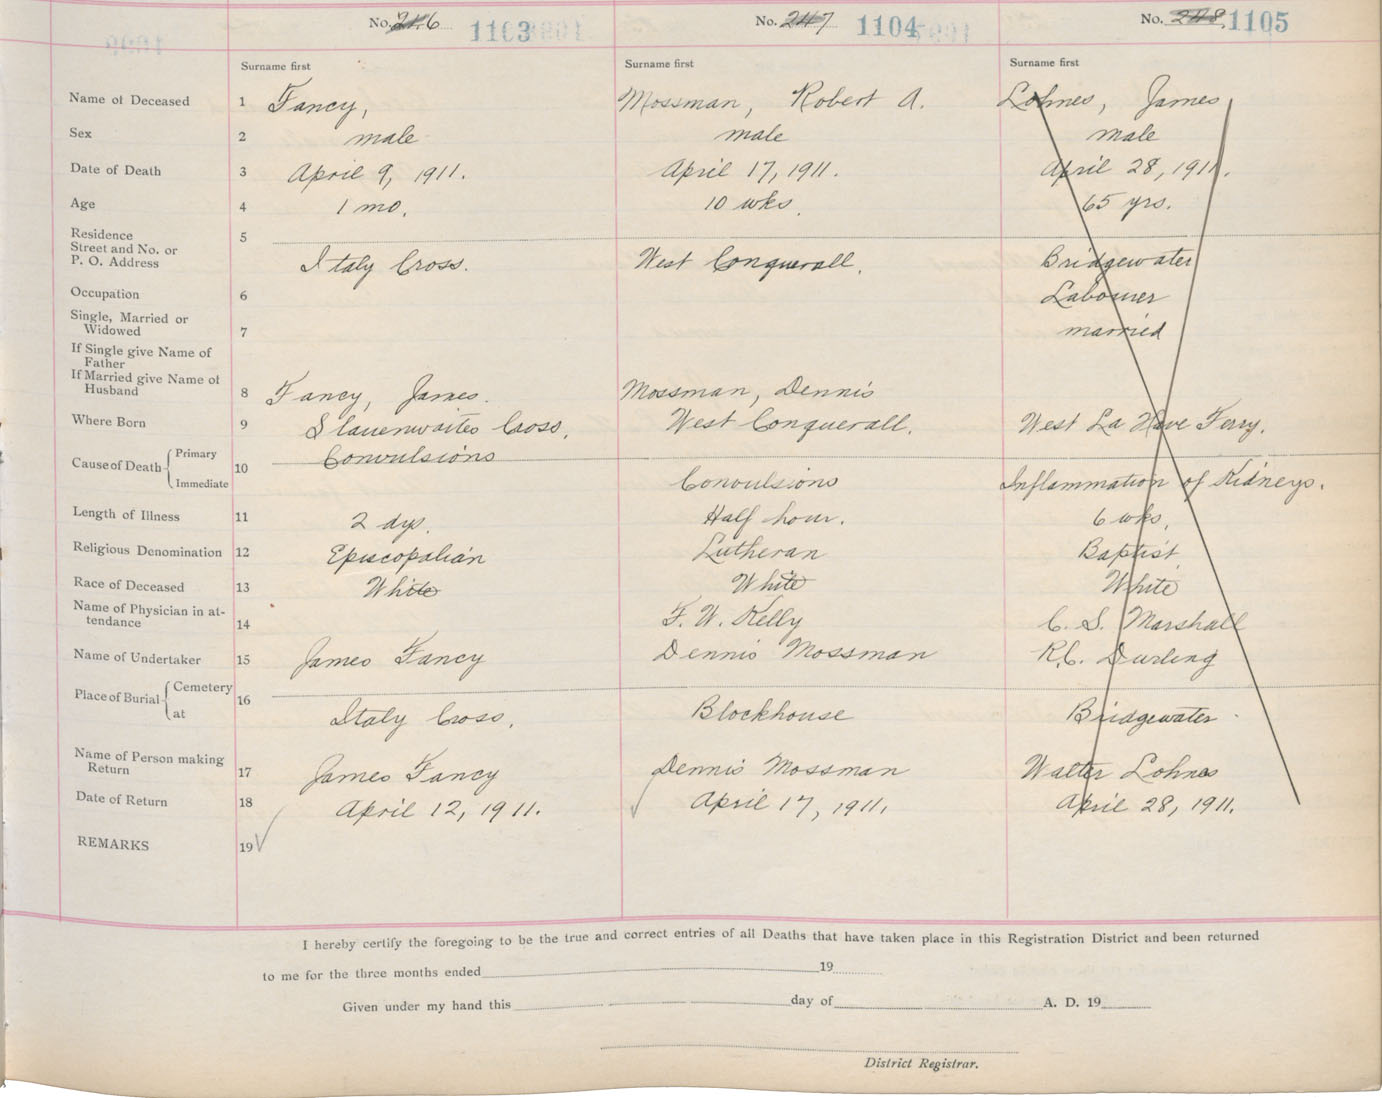 No. 246 1103
No. 247 1104
No. 248 1105
Surname first Surname first Surname first
Name of Deceased 1 Fancy, Mossman, Robert A. Lohnes, James
Sex 2 male male male
Date of Death 3 April 9, 1911. April 17, 1911. April 28, 1911.
Age 4 1 mo. 10 wks. 65 yrs.
Residence
Street and No. or 5
P. O. Address Italy Cross. West Conquerall. Bridgewater
Occupation 6 Labourer
Single, Married or
Widowed 7 married
If Single give Name of
Father
If Married give Name of
Husband 8 Fancy, James. Mossman, Dennis
Where Born 9 Slauenwaites Cross. West Conquerall. West La Have Ferry.
Cause of Death Primary 10 Convulsions
Immediate Convulsions Inflammation of Kidneys.
Length of Illness 11 2 dys. Half hour. 6 wks.
Religious Denomination 12 Episcopalian Lutheran Baptist
Race of Deceased 13 White White White
Name of Physician in at-
tendance 14 F. W. Kelly C. S. Marshall
Name of Undertaker 15 James Fancy Dennis Mossman R.C. Durling
Place of Burial Cemetery 16
at Italy Cross. Blockhouse Bridgewater
Name of Person making
Return 17 James Fancy Dennis Mossman Walter Lohnes
Date of Return 18 April 12, 1911. April 17, 1911. April 28, 1911.
REMARKS 19
I hereby certify the foregoing to be the true and correct entries of all Deaths that have taken place in this Registration District and been returned
to me for the three months ended 19
Given under my hand this day of A. D. 19
District Registrar.